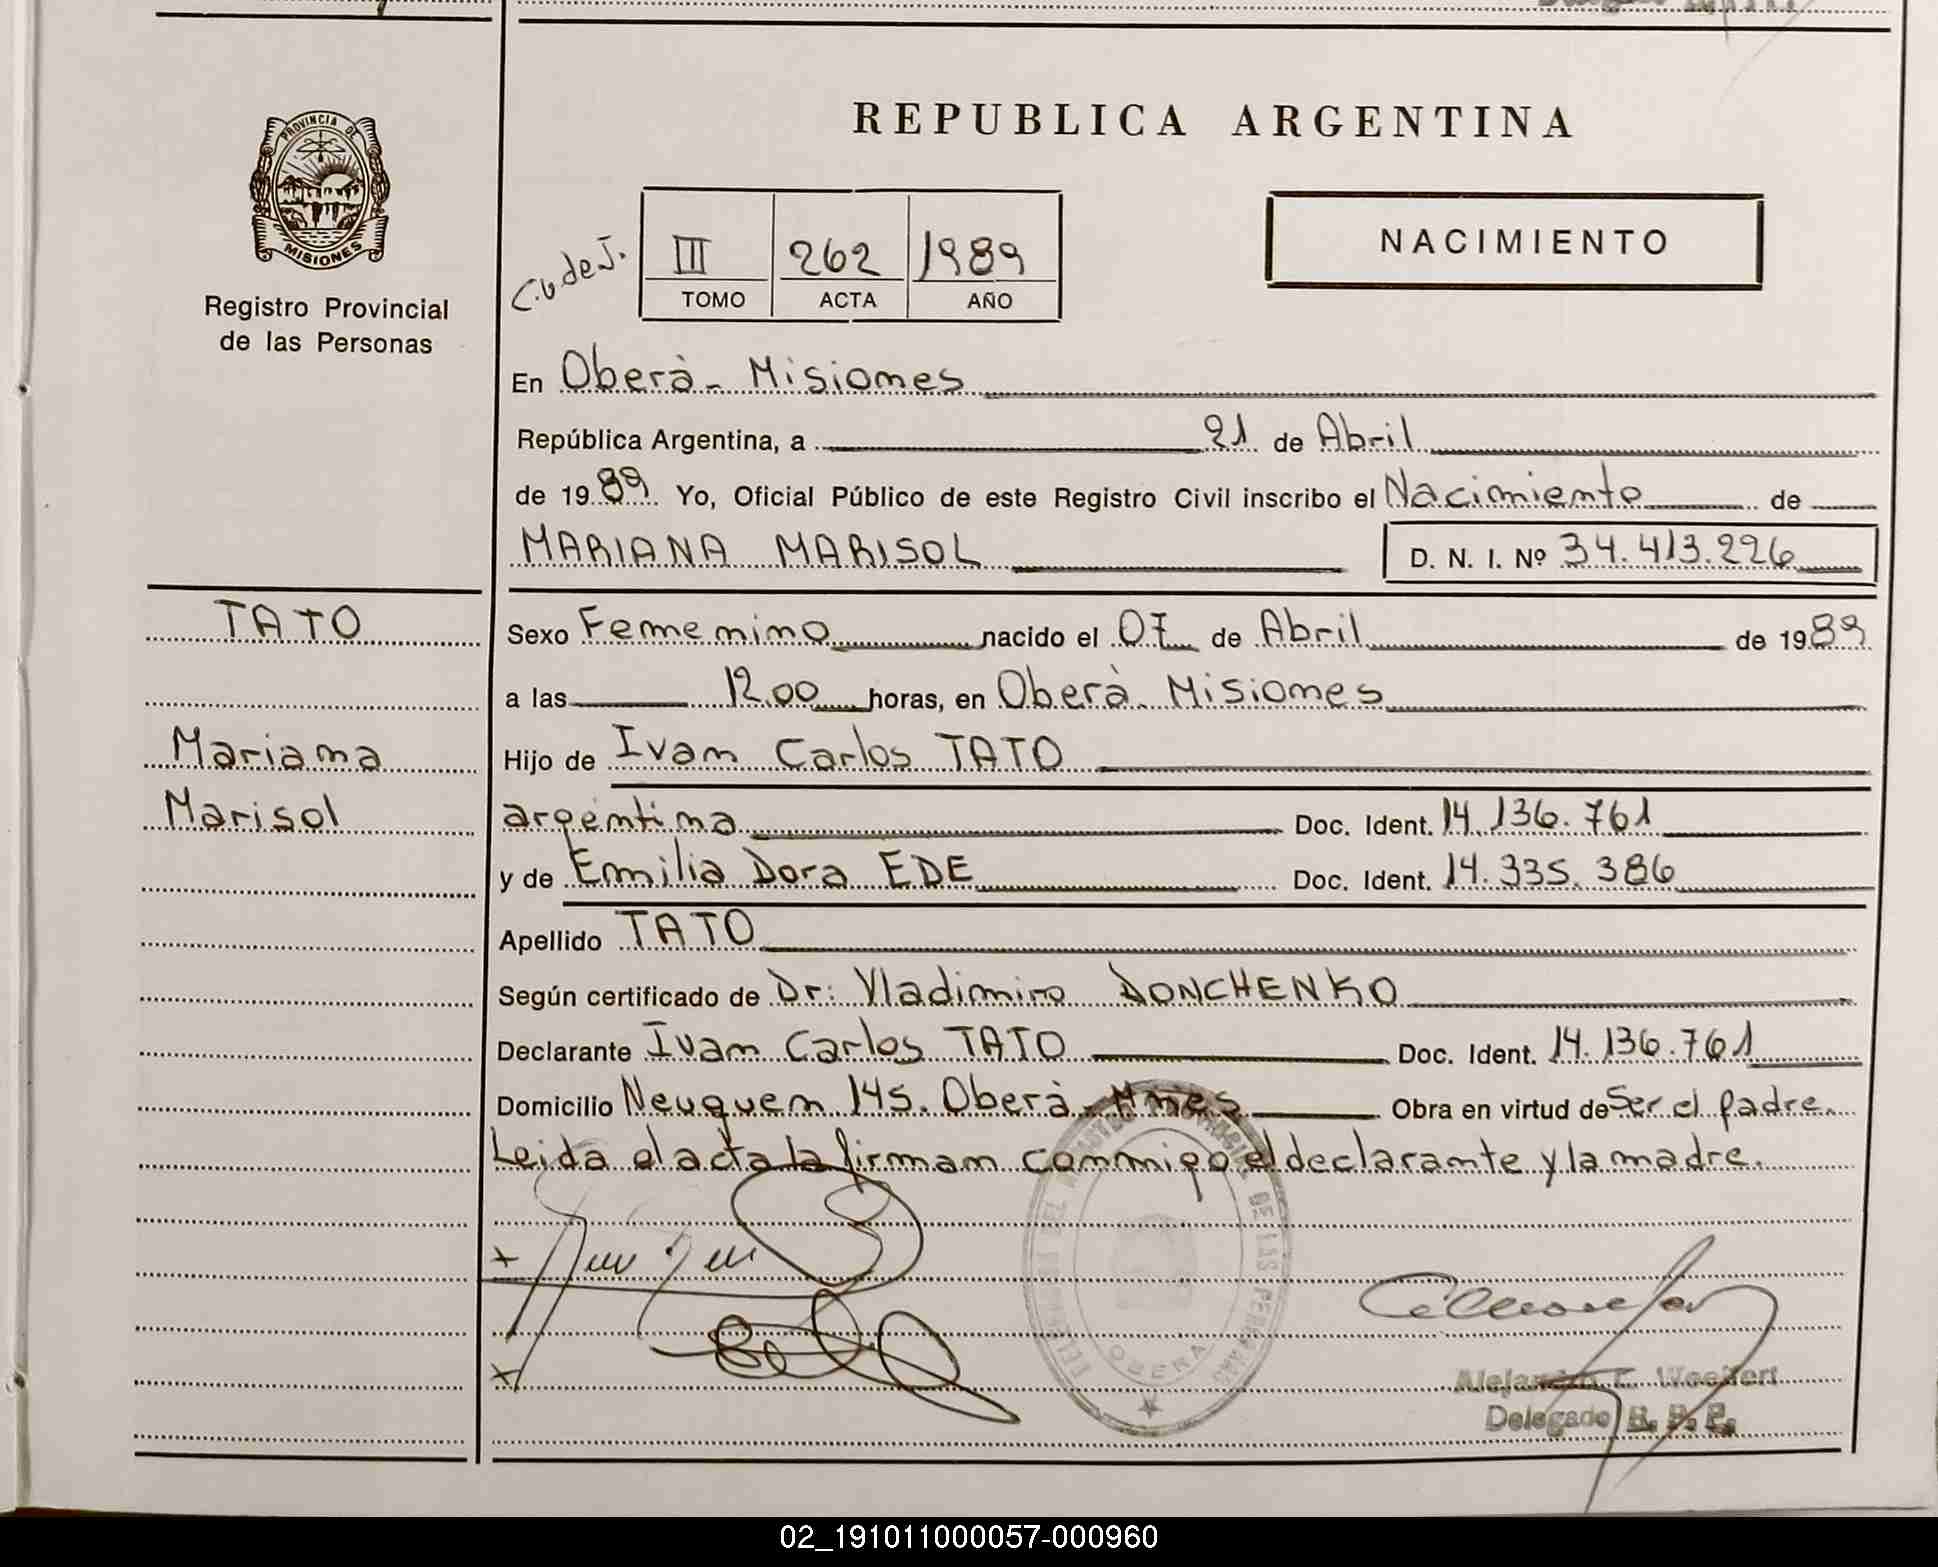 PROVINCIA DE
MISIONES
Registro Provincial
de las Personas
REPUBLICA ARGENTINA
C.U de J.
III 262 1989
TOMO ACTA AÑO
NACIMIENTO
En Oberà - Misiones
República Argentina, a 21 de Abril
de 19 89 Yo, Oficial Público de este Registro Civil inscribo el Nacimiento de
MARIANA MARISOL D. N. I. Nº 34.413.226
TATO
Mariana
Marisol
Sexo Femenino nacido el 07 de Abril de 19 89
a las 12.00 horas, en Oberà - Misiones
Hijo de Ivan Carlos TATO
argentina Doc. Ident. 14.136.761
y de Emilia Dora EDE Doc. Ident. 14.335.386
Apellido TATO
Según certificado de Dr: Vladimiro DONCHENKO
Declarante Ivan Carlos TATO Doc. Ident. 14.136.761
Domicilio Neuquen 145. Oberà - Mnes Obra en virtud de Ser el padre.
Leida el acta la firman conmigo el declarante y la madre.
DE LAS PERSONAS
OBERA
Delegado R. P. P.
02_191011000057-000960